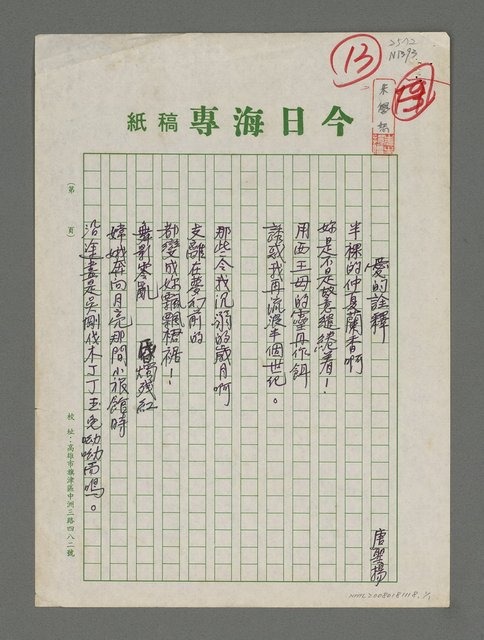 2572
N1393
13
今日海專稿紙
朱學恕
愛的詮釋
唐聖揚
半裸的仲夏蘭香啊
妳是不是故意繾綣着！
用西王母的靈丹作餌
誘惑我再流浪半個世紀。
那些令我沉溺的歲月啊
支離在夢幻前的
都變成妳飄飄裙裾！
舞影零亂
燭殘紅
嫦娥奔向月亮那間小旅館時
沿途盡是吳剛伐木丁丁玉兔呦呦而鳴。
（第　頁）
校址：高雄市旗津區中洲三路四八二號
NMTL20080181118.1/1